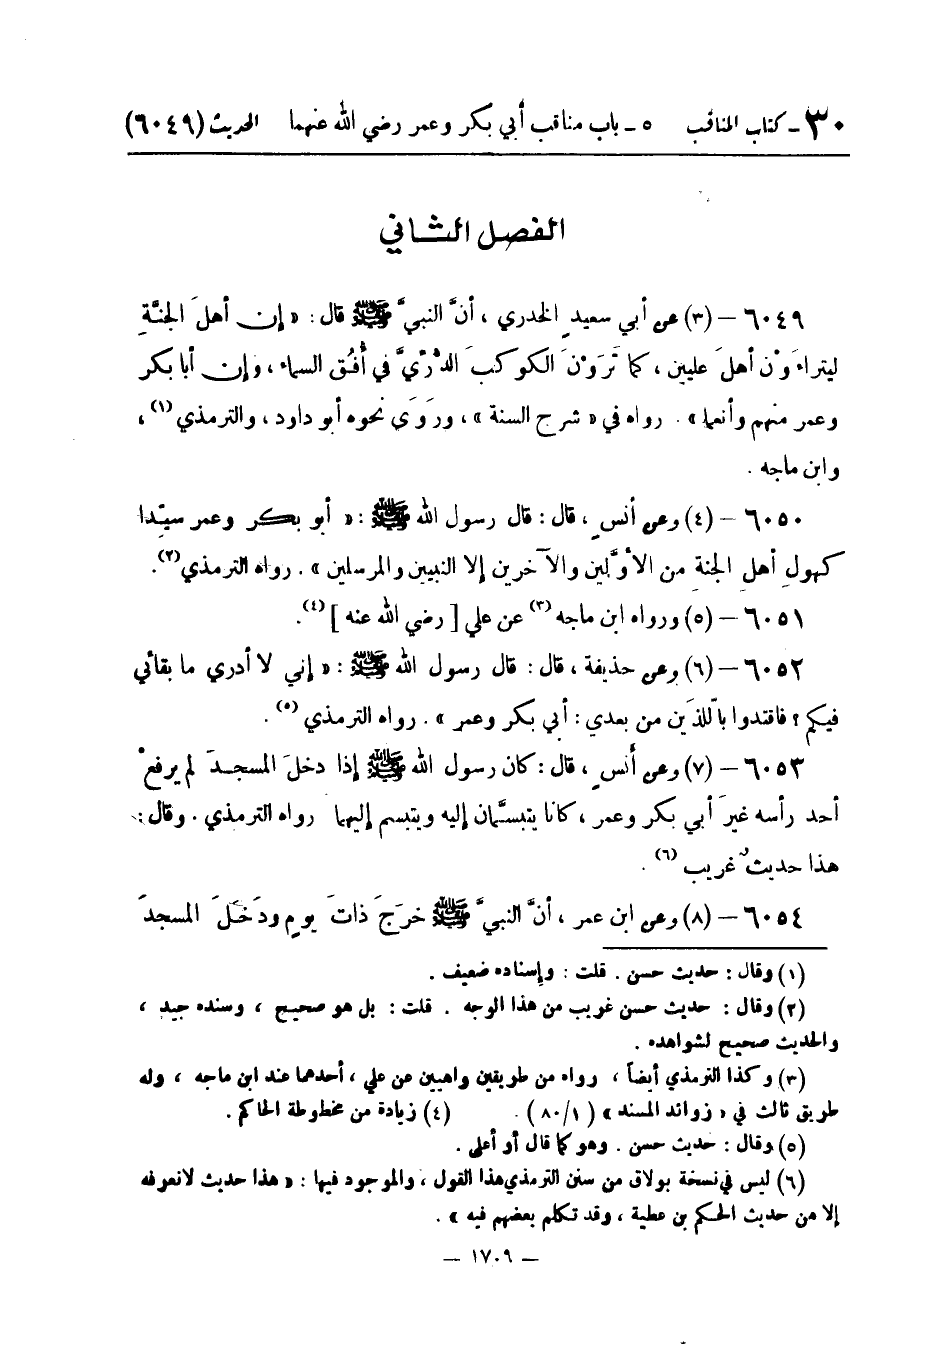 ٣٠ ـ كتاب المناقب ٥ ـ باب مناقب أبي بكر وعمر رضي الله عنهما الحديث (٦٠٤٩)
الفصل الثاني
٦٠٤٩ – (٣) عن أبي سعيدٍ الخدري ، أنَّ النبيَّ ﷺ قال : « إن أهلَ الجنَّةِ
ليتراءَوْن أهلَ عليين ، كما تَرَوْنَ الكوكبَ الدُّرّيَّ في أُفُق السماء ، وإن أبا بكر
وعمر منهم وأنعما » . رواه في « شرح السنة » ، ورَوَى نحوه أبو داود ، والترمذي (١) ،
وابن ماجه .
٦٠٥٠ – (٤) وعن أنسٍ ، قال : قال رسول الله ﷺ : « أبو بكر وعمر سيّدا
كهولِ أهلِ الجنةِ من الأوَّلين والآخرين إلا النبيين والمرسلين » . رواه الترمذي (٢) .
٦٠٥١ – (٥) ورواه ابن ماجه (٣) عن علي [ رضي الله عنه ] (٤) .
٦٠٥٢ – (٦) وعن حذيفة ، قال : قال رسول الله ﷺ : « إني لا أدري ما بقائي
فيكم ؟ فاقتدوا باللذَين من بعدي : أبي بكر وعمر » . رواه الترمذي (٥) .
٦٠٥٣ – (٧) وعن أنسٍ ، قال : كان رسول الله ﷺ إذا دخلَ المسجدَ لم يرفعْ
أحد رأسه غيرَ أبي بكر وعمر ، كانا يتبسَّمان إليه ويتبسم إليهما رواه الترمذي . وقال :
هذا حديثٌ غريب (٦) .
٦٠٥٤ – (٨) وعن ابن عمر ، أنَّ النبيَّ ﷺ خرَجَ ذاتَ يومٍ ودَخَلَ المسجدَ
(١) وقال : حديث حسن . قلت : وإسناده ضعيف .
(٢) وقال : حديث حسن غريب من هذا الوجه . قلت : بل هو صحيح ، وسنده جيد ،
والحديث صحيح لشواهده .
(٣) وكذا الترمذي أيضاً ، رواه من طريقين واهيين عن علي ، أحدهما عند ابن ماجه ، وله
طريق ثالث في « زوائد المسند » ( ١/ ٨٠ ) . (٤) زيادة من مخطوطة الحاكم .
(٥) وقال : حديث حسن . وهو كما قال أو أعلى .
(٦) ليس في نسخة بولاق من سنن الترمذي هذا القول ، والموجود فيها : « هذا حديث لا نعرفه
إلا من حديث الحكم بن عطية ، وقد تكلم بعضهم فيه » .
– ١٧٠٩ –